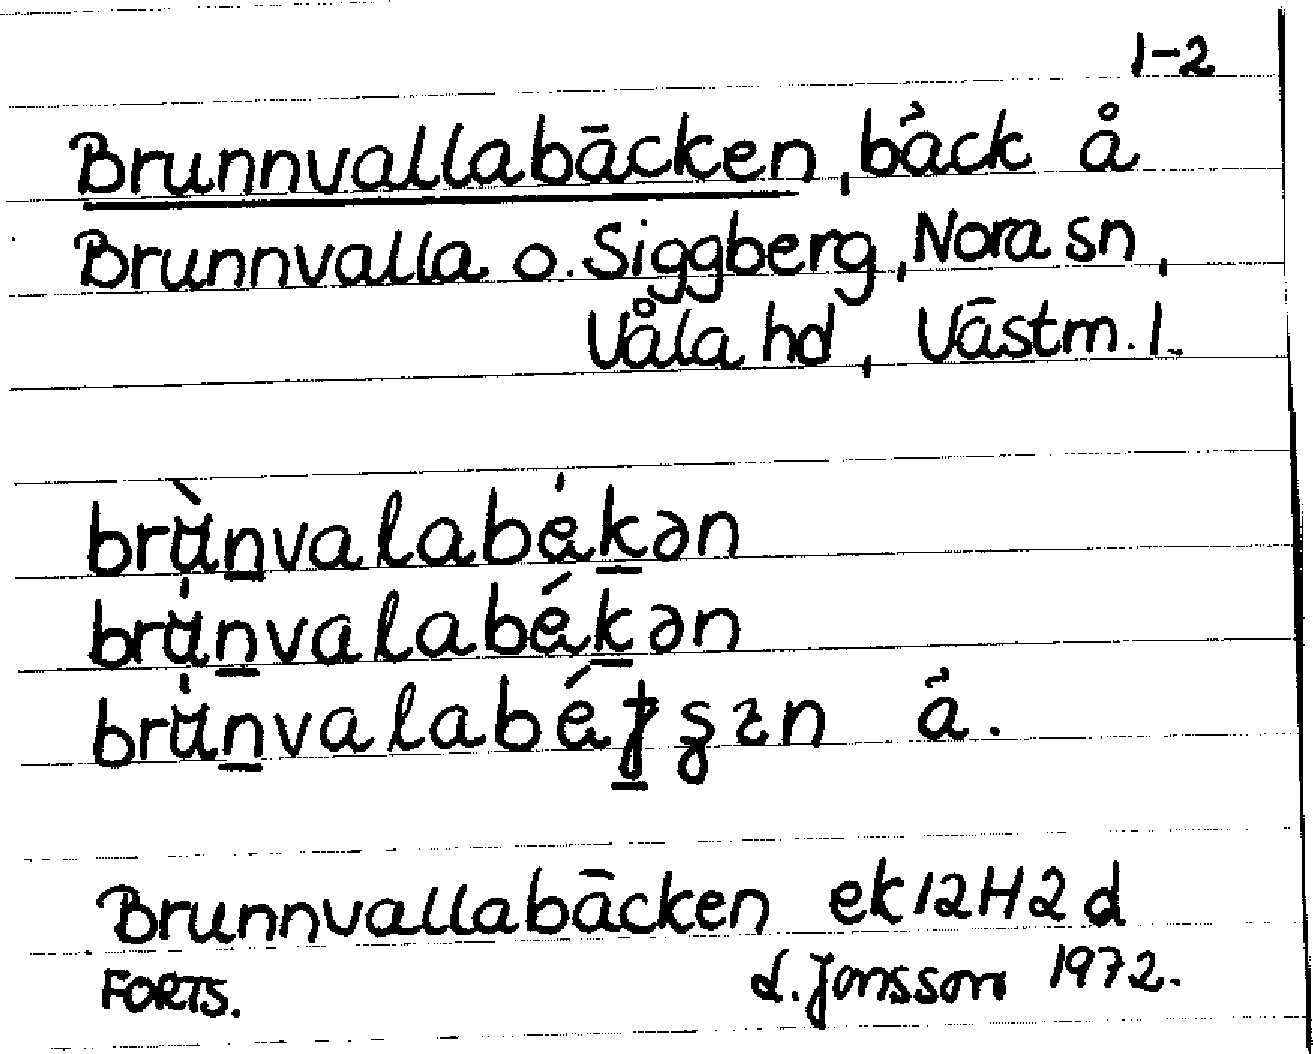 1-2
Brunnvallabäcken, bäck å
Brunnvalla o. Siggberg, Nora sn,
Våla hd, Västm. l.
brùn̲valabék̲ən
brún̲valabék̲ən
brún̲valabé ʂɪn ä.
Brunnvallabäcken ek 12H2d
FORTS. L. Jonsson 1972.